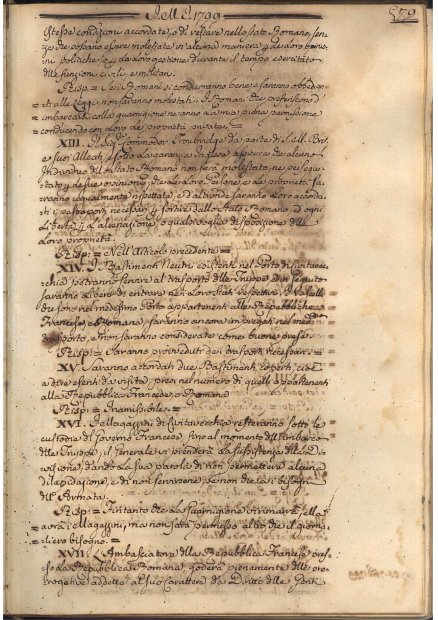 I.M.I. 1799
579
stesse condizioni accordate, o di restare nello Stato Romano, sen-
za che possano essere molestati in alcuna maniera per le loro opinio-
ni politiche, e per la loro gestione durante il tempo esercitato
delle funzioni civili, e militari.
Risp. = Se i Romani si condurranno bene, e saranno obbedien-
= ti alle Leggi, non saranno molestati. I Romani che preferiscono d'
= imbarcarsi colla guarnigione ne avranno la mia piena permissione
= conducendo con loro le proprietà private =
XIII. Il Sig. Commodor Troubridge da parte di S. M. Bri.
e suoi Alleati, e sotto la garanzia Inglese assicura che alcun
Individuo dello Stato Romano non sarà molestato, nè persegui-
tato per le sue opinioni; che le loro Persone, e le proprietà sa-
ranno ugualmente rispettate, ed al bisogno saranno loro accorda-
ti i passaporti necessari per sortire dallo Stato Romano, ed ogni
libertà per l'alienazione, o qualsivoglia disposizione delle
loro proprietà.
Risp. = Nell'Articolo precedente =
XIV. I Bastimenti Neutri esistenti nel Porto di Civitavec-
chia potranno servire al trasporto delle Truppe, ed in seguito
saranno liberi di entrare nei loro Stati rispettivi. I Vascelli
che sono nel medesimo Porto appartenenti alle Repubbliche
Francese, e Romana, saranno ancora impiegati nel mede-
trasporto, e non saranno considerate come buone prese.
Risp. = Saranno provveduti dei trasporti necessari =
XV. Saranno accordati due Bastimenti coperti, cioè
a dire esenti da visita, presi nel numero di quelli appartenenti
alla Repubblica Francese, o Romana
Risp. = Inamissibile =
XVI. I Magazzini di Civitavecchia resteranno sotto la
custodia del Governo Francese, fino al momento dell'imbarco
delle Truppe, il Generale ne prenderà la sussistenza della Di-
visione, dando la sua parola di non permettere alcuna
dilapidazione, e di non servirsene, se non che ai bisogni
dell'Armata.
Risp. = Intanto che la Guarnigione vi rimarrà, sella
= avrà i Magazzini, ma non sarà permesso altro che il giorna-
= liero bisogno =
XVII. L'Ambasciatore della Repubblica Francese pres-
so la Repubblica Romana, goderà pienamente delle pre-
rogative addette al suo Carattere dal Diritto delle Genti